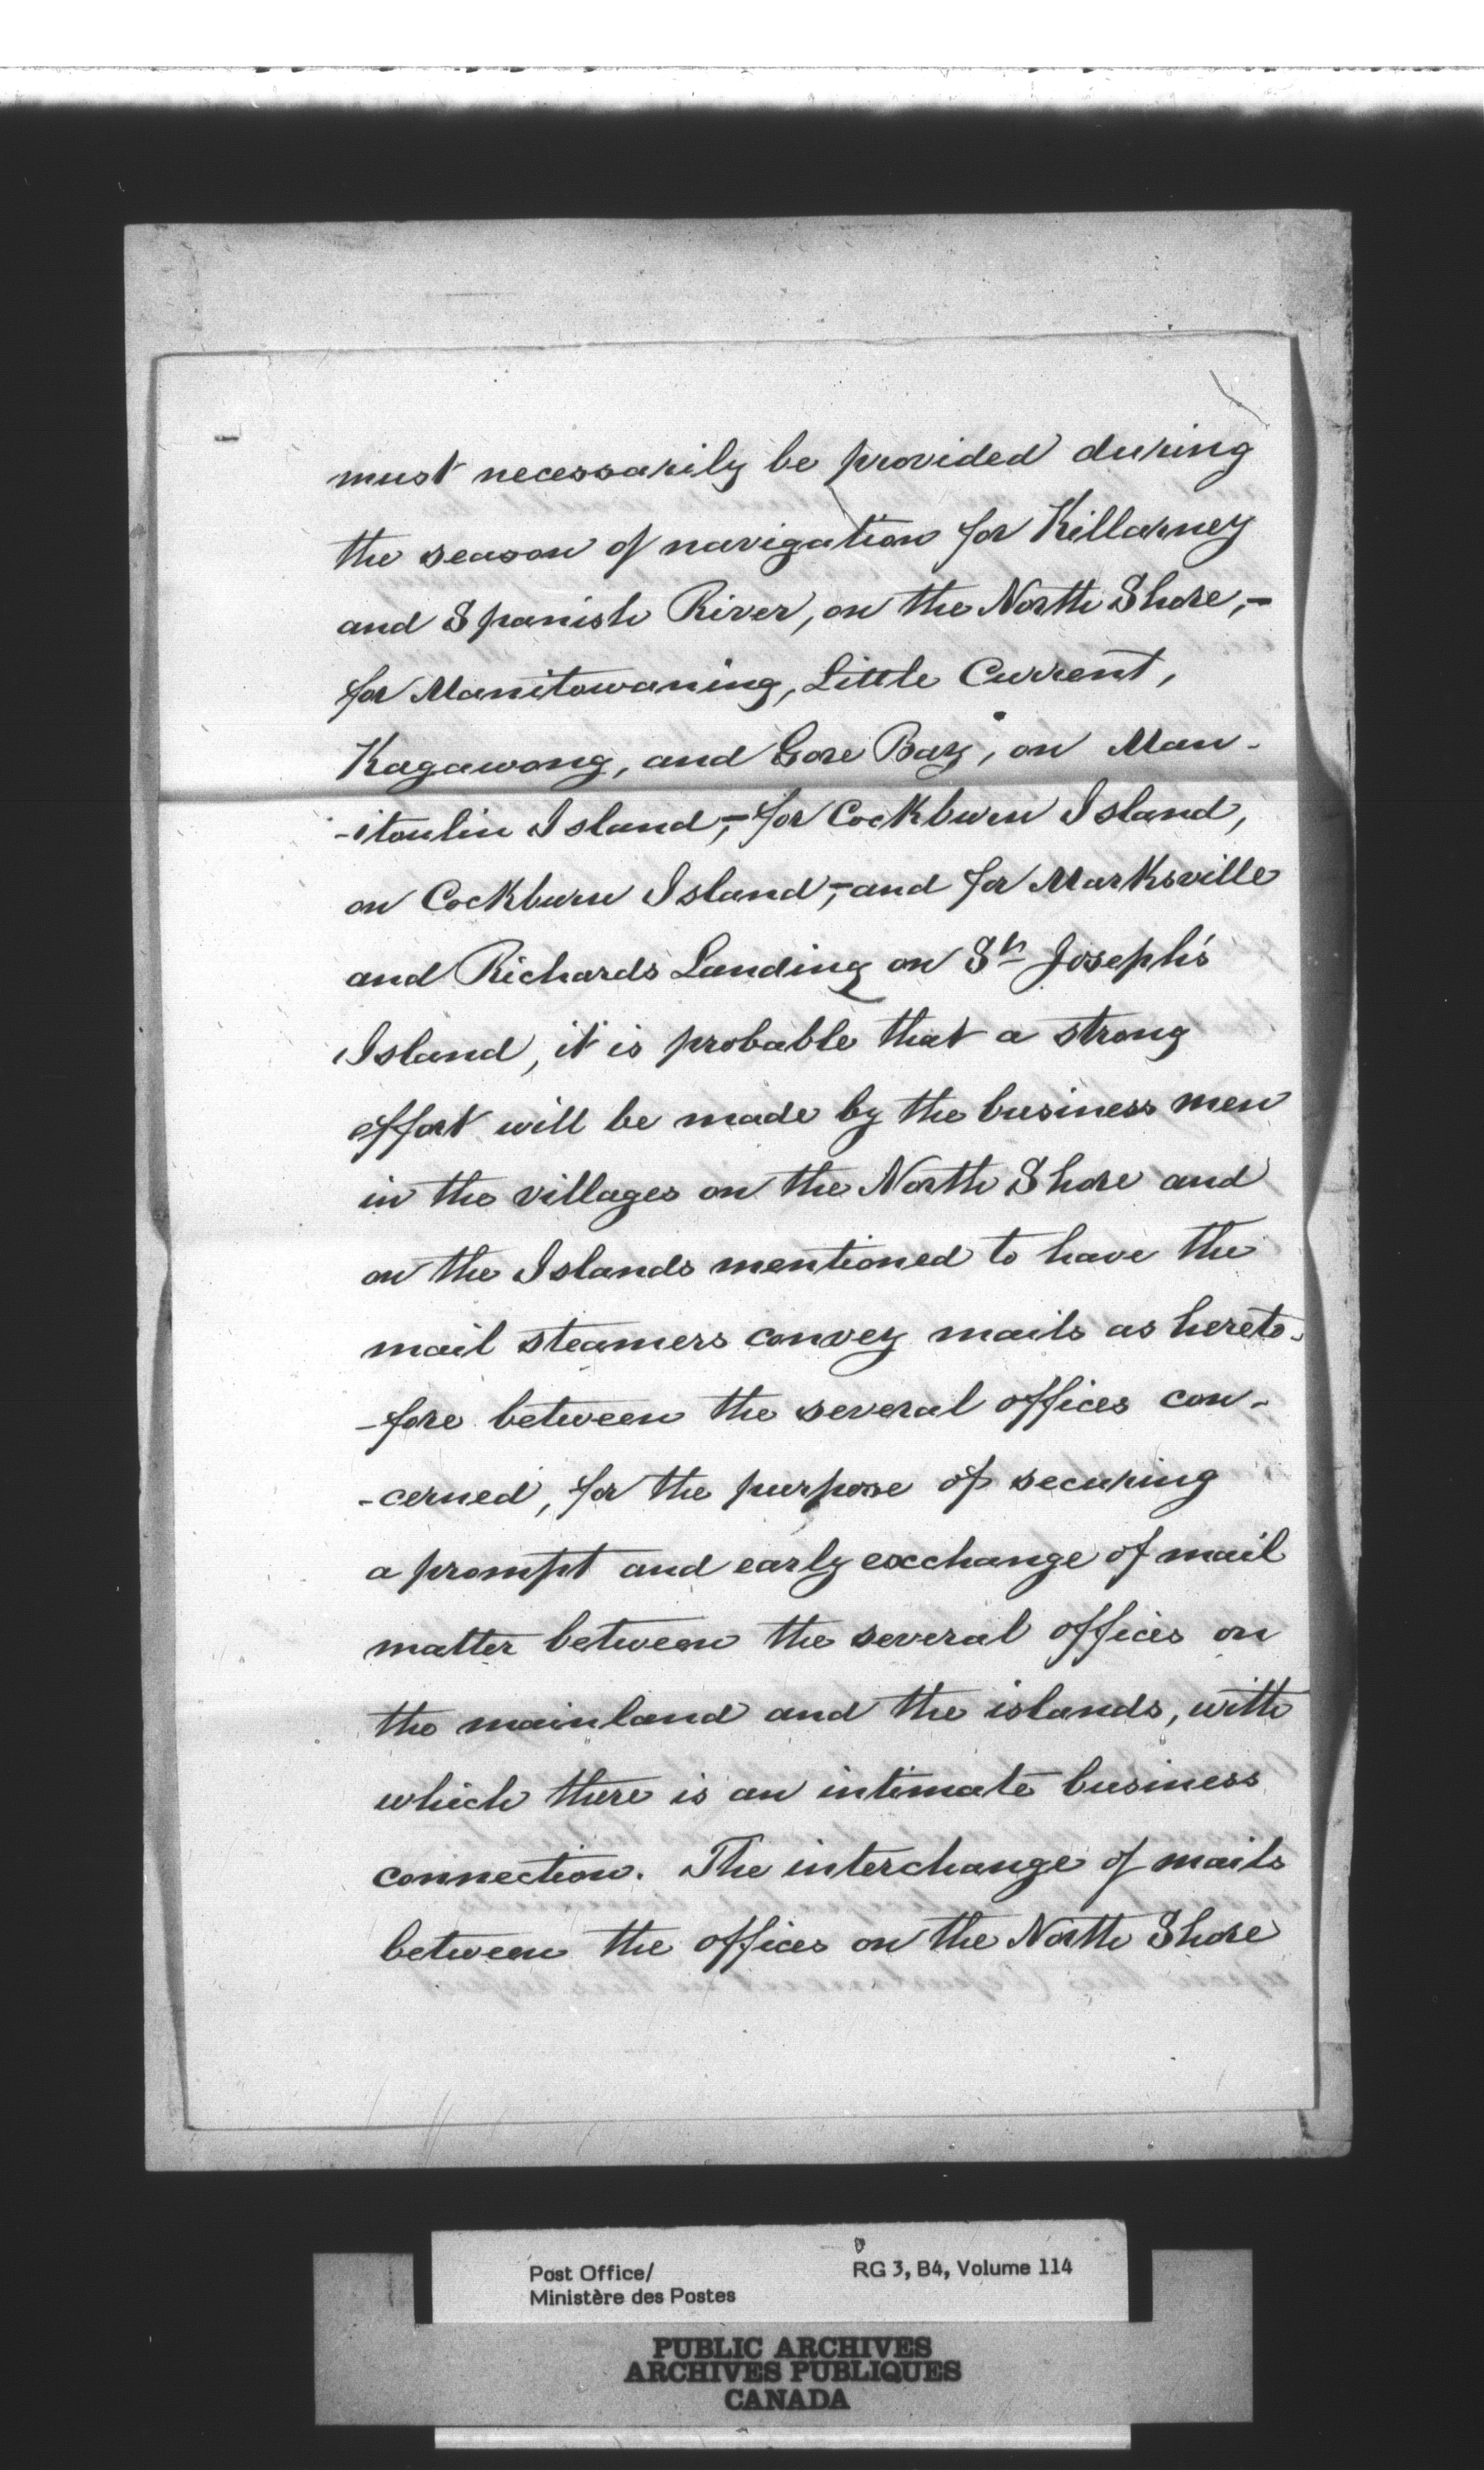 must necessarily be provided during
the season of navigation for Killarney
and Spanish River, on the North Shore,-
for Manitowaning, Little Current,
Kagawong, and Gore Bay, on Man-
-itoulin Island,- for Cockburn Island,
on Cockburn Island,- and for Marksville
and Richards Landing on St Joseph's
Island, it is probable that a strong
effort will be made by the business men
in the villages on the North Shore and
on the Islands mentioned to have the
mail steamers convey mails as hereto-
-fore between the several offices con-
-cerned, for the purpose of securing
a prompt and early exchange of mail
matter between the several offices on
the mainland and the islands, with
which there is an intimate business
connection. The interchange of mails
between the offices on the North Shore
Post Office/
Ministère des Postes
RG 3, B4, Volume 114
PUBLIC ARCHIVES
ARCHIVES PUBLIQUES
CANADA